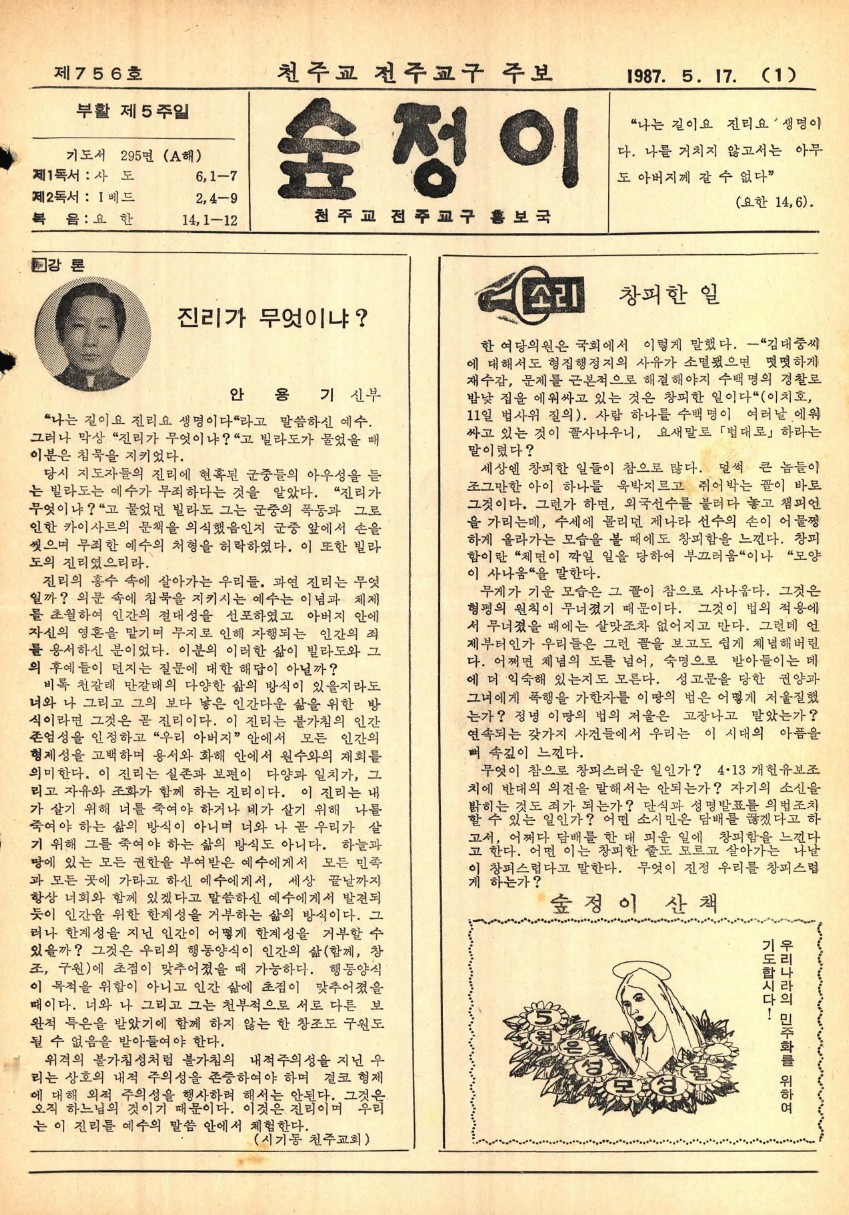 제756호
천주교 전주교구 주보
1987. 5. 17. (1)
부활 제5주일
기도서 295면 (A해)
제1독서 : 사 도 6,1—7
제2독서 : I 베드 2,4—9
복 음 : 요 한 14,1—12
숲정이
천주교 전주교구 홍보국
“나는 길이요 진리요 생명이
다. 나를 거치지 않고서는 아무
도 아버지께 갈 수 없다”
(요한 14,6).
강 론
진리가 무엇이냐?
안 용 기 신부
“나는 길이요 진리요 생명이다“라고 말씀하신 예수.
그러나 막상 “진리가 무엇이냐?“고 빌라도가 물었을 때
이분은 침묵을 지키었다.
당시 지도자들의 진리에 현혹된 군중들의 아우성을 듣
는 빌라도는 예수가 무죄하다는 것을 알았다. “진리가
무엇이냐?“고 물었던 빌라도 그는 군중의 폭동과 그로
인한 카이사르의 문책을 의식했음인지 군중 앞에서 손을
씻으며 무죄한 예수의 처형을 허락하였다. 이 또한 빌라
도의 진리였으리라.
진리의 홍수 속에 살아가는 우리들. 과연 진리는 무엇
일까? 의문 속에 침묵을 지키시는 예수는 이념과 체제
를 초월하여 인간의 절대성을 선포하였고 아버지 안에
자신의 영혼을 맡기며 무지로 인해 자행되는 인간의 죄
를 용서하신 분이었다. 이분의 이러한 삶이 빌라도와 그
의 후예들이 던지는 질문에 대한 해답이 아닐까?
비록 천갈래 만갈래의 다양한 삶의 방식이 있을지라도
너와 나 그리고 그의 보다 낳은 인간다운 삶을 위한 방
식이라면 그것은 곧 진리이다. 이 진리는 불가침의 인간
존엄성을 인정하고 “우리 아버지” 안에서 모든 인간의
형제성을 고백하며 용서와 화해 안에서 원수와의 재회를
의미한다. 이 진리는 실존과 보편이 다양과 일치가, 그
리고 자유와 조화가 함께 하는 진리이다. 이 진리는 내
가 살기 위해 너를 죽여야 하거나 네가 살기 위해 나를
죽여야 하는 삶의 방식이 아니며 너와 나 곧 우리가 살
기 위해 그를 죽여야 하는 삶의 방식도 아니다. 하늘과
땅에 있는 모든 권한을 부여받은 예수에게서 모든 민족
과 모든 곳에 가라고 하신 예수에게서, 세상 끝날까지
항상 너희와 함께 있겠다고 말씀하신 예수에게서 발견되
듯이 인간을 위한 한계성을 거부하는 삶의 방식이다. 그
러나 한계성을 지닌 인간이 어떻게 한계성을 거부할 수
있을까? 그것은 우리의 행동양식이 인간의 삶(함께, 창
조, 구원)에 초점이 맞추어졌을 때 가능하다. 행동양식
이 목적을 위함이 아니고 인간 삶에 초점이 맞추어졌을
때이다. 너와 나 그리고 그는 천부적으로 서로 다른 보
완적 특은을 받았기에 함께 하지 않는 한 창조도 구원도
될 수 없음을 받아들여야 한다.
위격의 불가침성처럼 불가침의 내적주의성을 지닌 우
리는 상호의 내적 주의성을 존중하여야 하며 결코 형제
에 대해 외적 주의성을 행사하려 해서는 안된다. 그것은
오직 하느님의 것이기 때문이다. 이것은 진리이며 우리
는 이 진리를 예수의 말씀 안에서 체험한다.
(시기동 천주교회)
소리
창피한 일
한 여당의원은 국회에서 이렇게 말했다. —“김대중씨
에 대해서도 형집행정지의 사유가 소멸됐으면 떳떳하게
재수감, 문제를 근본적으로 해결해야지 수백명의 경찰로
밤낮 집을 에워싸고 있는 것은 창피한 일이다“(이치호,
11일 법사위 질의). 사람 하나를 수백명이 여러날 에워
싸고 있는 것이 꼴사나우니, 요새말로 「법대로」하라는
말이렸다?
세상엔 창피한 일들이 참으로 많다. 덜썩 큰 놈들이
조그만한 아이 하나를 윽박지르고 쥐어박는 꼴이 바로
그것이다. 그런가 하면, 외국선수를 불러다 놓고 챔피언
을 가리는데, 수세에 몰리던 제나라 선수의 손이 어물쩡
하게 올라가는 모습을 볼 때에도 창피함을 느낀다. 창피
함이란 “체면이 깍일 일을 당하여 부끄러움“이나 “모양
이 사나움“을 말한다.
무게가 기운 모습은 그 꼴이 참으로 사나웁다. 그것은
형평의 원칙이 무너졌기 때문이다. 그것이 법의 적용에
서 무너졌을 때에는 살맛조차 없어지고 만다. 그런데 언
제부터인가 우리들은 그런 꼴을 보고도 쉽게 체념해버린
다. 어쩌면 체념의 도를 넘어, 숙명으로 받아들이는 데
에 더 익숙해 있는지도 모른다. 성고문을 당한 권양과
그녀에게 폭행을 가한자를 이땅의 법은 어떻게 저울질했
는가? 정녕 이땅의 법의 저울은 고장나고 말았는가?
연속되는 갖가지 사건들에서 우리는 이 시대의 아픔을
뼈 속깊이 느낀다.
무엇이 참으로 창피스러운 일인가? 4·13 개헌유보조
치에 반대의 의견을 말해서는 안되는가? 자기의 소신을
밝히는 것도 죄가 되는가? 단식과 성명발표를 의법조치
할 수 있는 일인가? 어떤 소시민은 담배를 끊겠다고 하
고서, 어쩌다 담배를 한 대 피운 일에 창피함을 느낀다
고 한다. 어떤 이는 창피한 줄도 모르고 살아가는 나날
이 창피스럽다고 말한다. 무엇이 진정 우리를 창피스럽
게 하는가?
숲정이 산책
우리나라의 민주화를 위하여
기도합시다!
5월은 성모성월